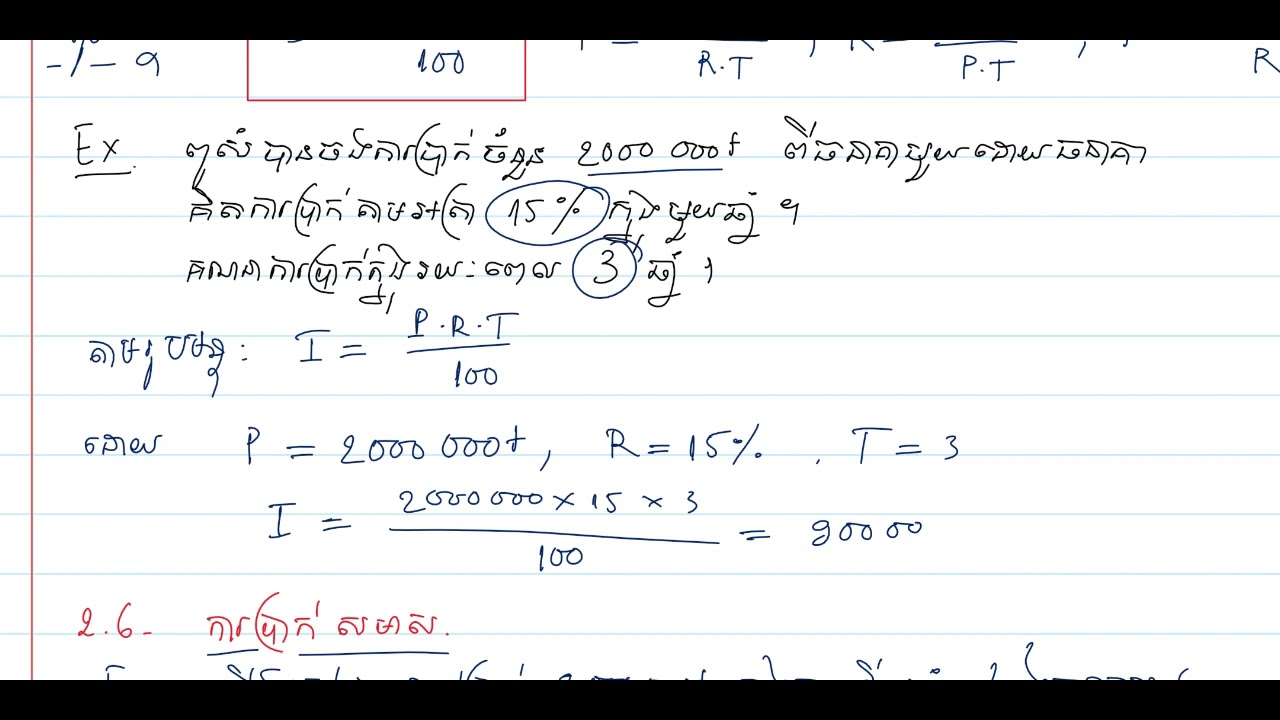 100 R.T , R= P.T R
Ex. ពូសំ បានចងការប្រាក់ ចំនួន 2000 000៛ ពីធនាគាមួយដោយធនាគា
គិតការប្រាក់ តាមអត្រា 15% ក្នុងមួយឆ្នាំ ។
គណនាការប្រាក់ក្នុងរយៈពេល 3 ឆ្នាំ ។
តាមរូបមន្ត: I = P.R.T / 100
ដោយ P = 2000 000៛, R = 15%. T = 3
I = 2000 000 × 15 × 3 / 100 = 90000
2.6- ការប្រាក់ សមាស.